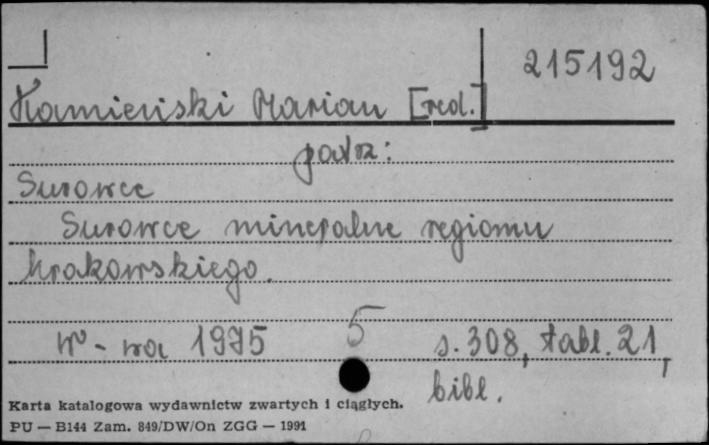 215192
Kamieński Marian [red.]
patrz:
Surowce
Surowce mineralne regionu
krakowskiego.
W-wa 1975 5 s. 308, tabl. 21,
bibl.
Karta katalogowa wydawnictw zwartych i ciągłych.
PU — B144 Zam. 849/DW/On ZGG — 1991